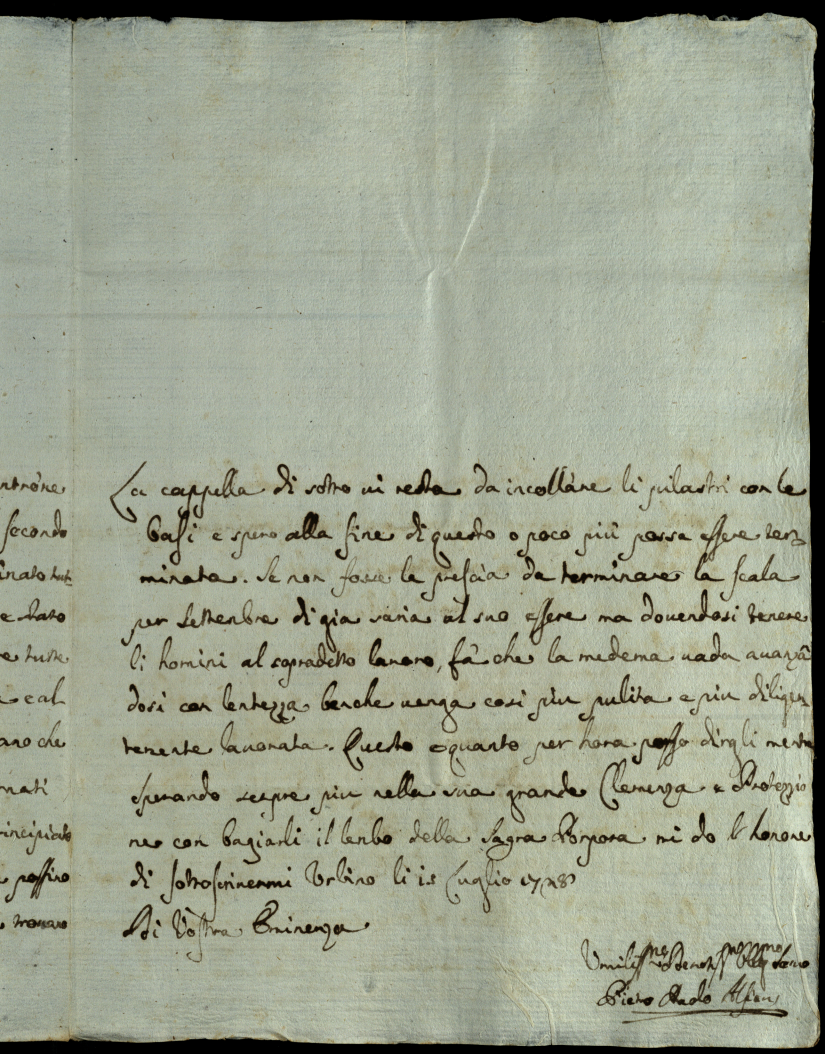 ntrōne
secondo
inato tutt
e stato
re tutte
a e al
ano che
rnati
rincipiato
a possino
trovaro
La cappella di sotto vi resta da incollàre li pilastri con le
basi e spero alla fine di questo o poco più possa essere ter
minata. Se non fosse la prescia da terminare la scala
per Settenbre di gia saria al suo essere ma dovendosi tenere
li homini al sopradetto lavoro, fà che la medema vada avanzā
dosi con lentezza benche venga cosi piu pulita e piu diligen
temente lavorata. Questo e quanto per hora posso dirgli mentre
sperando sempre piu nella sua grande Clemenza e Protezzio
ne con bagiarli il lenbo della Sagra Porpora mi do l honore
di sottoscrivermi Urbino li 15 Luglio 1728
Di Vostra Eminenza
Umiliss.mo Devotiss.mo Oblig.mo Servo
Pietro Paolo